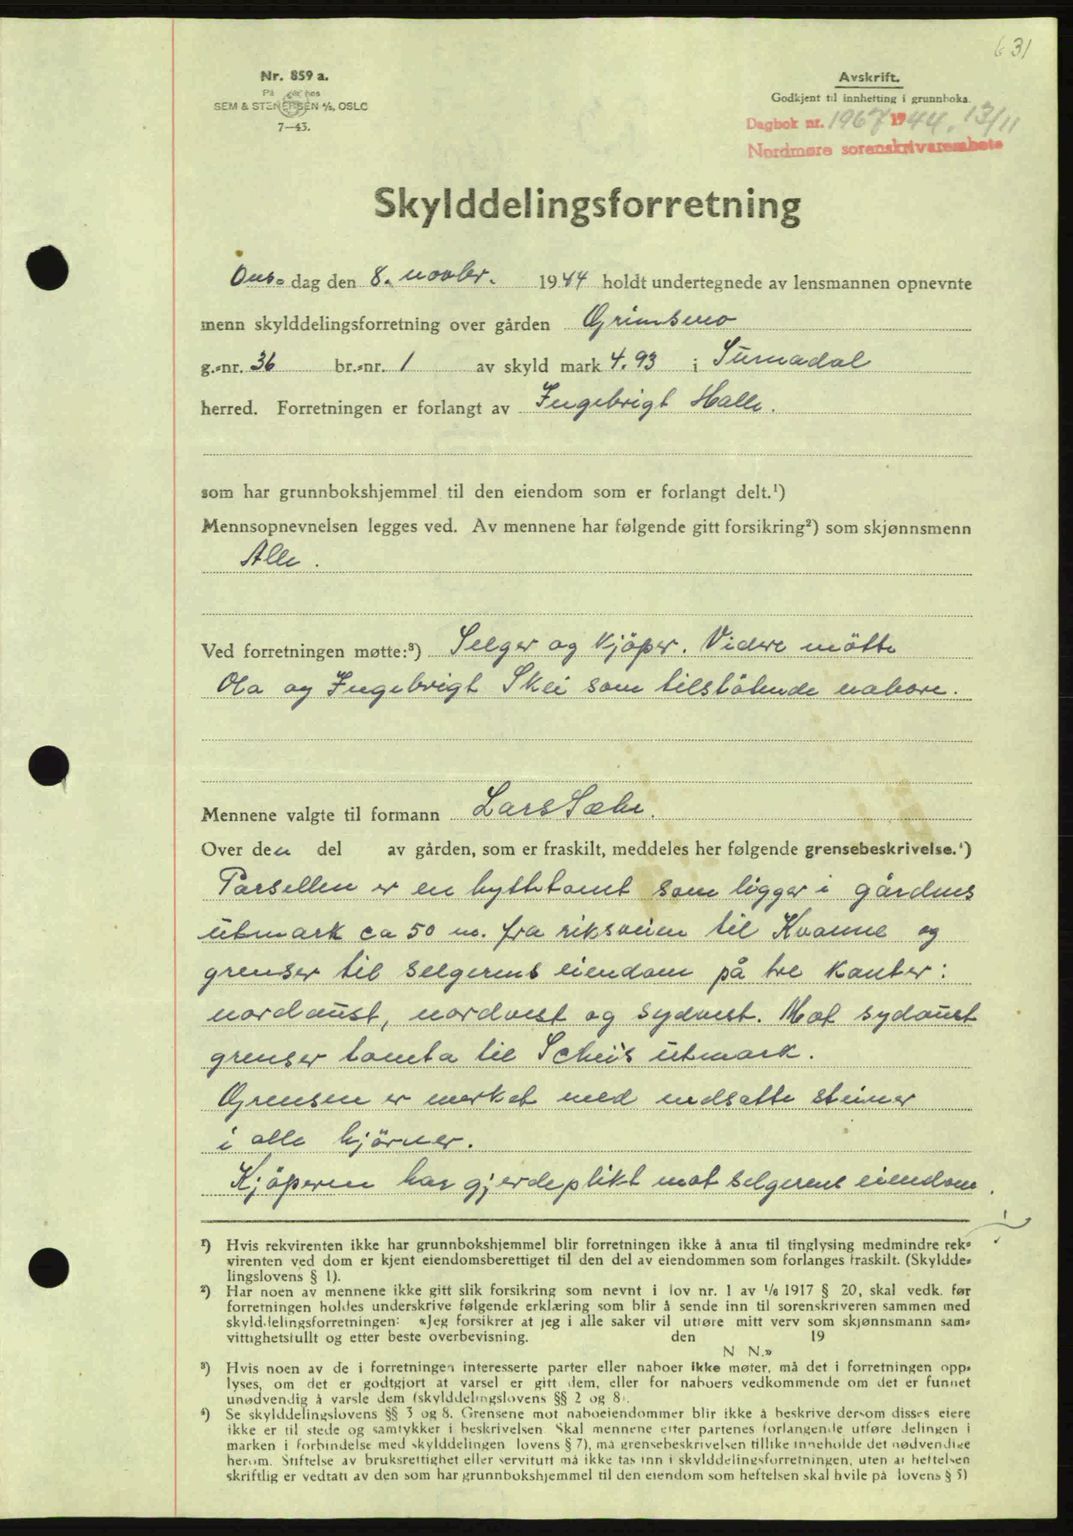 631
Nr. 859 a.
På lager hos
SEM & STENERSEN A/S, OSLO
7—43.
Avskrift.
Godkjent til innhefting i grunnboka.
Dagbok nr. 1967 1944. 13/11
Nordmøre sorenskrivarembete
Skylddelingsforretning
Ons- dag den 8. novbr. 1944 holdt undertegnede av lensmannen opnevnte
menn skylddelingsforretning over gården Grimsmo
g.-nr. 36 br.-nr. 1 av skyld mark 4.93 i Surnadal
herred. Forretningen er forlangt av Ingebrigt Halle.
som har grunnbokshjemmel til den eiendom som er forlangt delt.¹)
Mennsopnevnelsen legges ved. Av mennene har følgende gitt forsikring²) som skjønnsmenn
Alle.
Ved forretningen møtte:³) Selger og kjöper. Videre mötte
Ola og Ingebrigt Skei som tilstötende nabore.
Mennene valgte til formann Lars Sæbø.
Over den del av gården, som er fraskilt, meddeles her følgende grensebeskrivelse.⁴)
Parsellen er en hyttetomt som ligger i gårdens
utmark ca 50 m. fra riksveien til Kvanne og
grenser til selgerens eiendom på tre kanter:
nordaust, nordvest og sydvest. Mot sydaust
grenser tomta til Scheis utmark.
Grensen er merket med nedsatte steiner
i alle hjörner.
Kjöperen har gjerdeplikt mot selgerens eiendom.
¹) Hvis rekvirenten ikke har grunnbokshjemmel blir forretningen ikke å anta til tinglysing medmindre rek-
virenten ved dom er kjent eiendomsberettiget til den del av eiendommen som forlanges fraskilt. (Skyldde-
lingslovens § 1).
²) Har noen av mennene ikke gitt slik forsikring som nevnt i lov nr. 1 av 1/6 1917 § 20, skal vedk. før
forretningen holdes underskrive følgende erklæring som blir å sende inn til sorenskriveren sammen med
skylddelingsforretningen: «Jeg forsikrer at jeg i alle saker vil utføre mitt verv som skjønnsmann sam-
vittighetsfullt og etter beste overbevisning. den 19
N N.»
³) Hvis noen av de i forretningen interesserte parter eller naboer ikke møter, må det i forretningen opp-
lyses, om det er godtgjort at varsel er gitt dem, eller for naboers vedkommende om det er funnet
unødvendig å varsle dem (skylddelingslovens §§ 2 og 8).
⁴) Se skylddelingslovens §§ 3 og 8. Grensene mot naboeiendommer blir ikke å beskrive dersom disses eiere
ikke er til stede og samtykker i beskrivelsen. Skal mennene etter partenes forlangende utføre delingen i
marken i forbindelse med skylddelingen (lovens § 7), må grensebeskrivelsen tillike inneholde det nødvendige
herom. Stiftelse av bruksrettighet eller servitutt må ikke tas inn i skylddelingsforretningen, uten at heftelsen
skriftlig er vedtatt av den som har grunnbokshjemmel til den eiendom som heftelsen skal hvile på (lovens § 5)